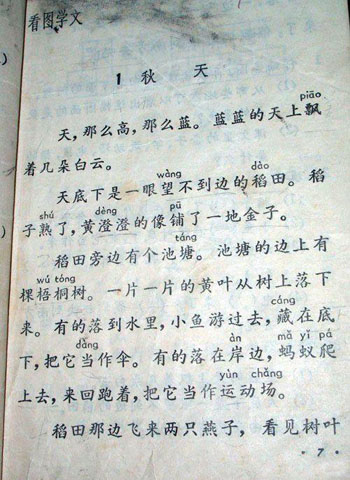 看图学文
1 秋 天
piāo
天，那么高，那么蓝。蓝蓝的天上飘
着几朵白云。
wàng dào
天底下是一眼望不到边的稻田。稻
shú dèng pū
子熟了，黄澄澄的像铺了一地金子。
táng
稻田旁边有个池塘。池塘的边上有
wú tóng
棵梧桐树。一片一片的黄叶从树上落下
cáng
来。有的落到水里，小鱼游过去，藏在底
dàng
下，把它当作伞。有的落在岸边，蚂蚁爬
àn mǎ yǐ pá
上去，来回跑着，把它当作运动场。
yùn chǎng
稻田那边飞来两只燕子，看见树叶
· 7 ·